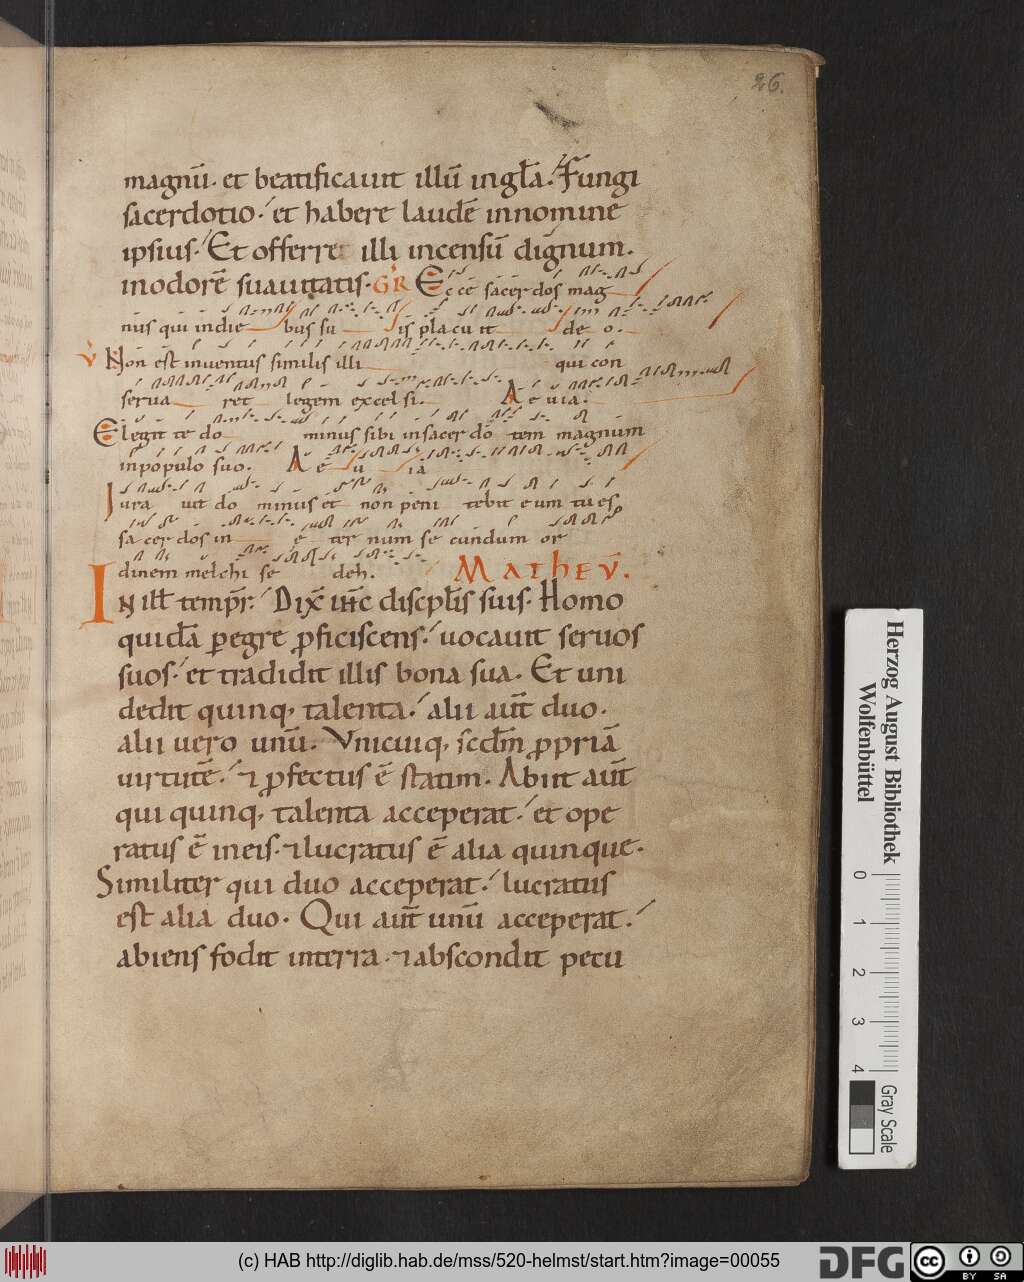 26.
magnū. et beatificauit illū ingła. Fungi
sacerdotio. et habere laudē innomine
ipsius. Et offerre illi incensū dignum.
inodorē suauitatis. GR Ecce sacerdos mag
nus qui indie bus su is placu it de o.
V Non est inuentus similis illi qui con
serua ret legem excelsi. A e uia.
Elegit te do minus sibi insacerdō tem magnum
inpopulo suo. A e u ia
Iura uit do minus et non peni tebit eum tu es
sacerdos in e ter num secundum or
dinem melchi se deh. MATHEV̄.
In iłł temp̄r. Dix̄ ih̄c discpłis suis. Homo
quidā peregre proficiscens. uocauit seruos
suos. et tradidit illis bona sua. Et uni
dedit quinq, talenta. alii aūt duo.
alii uero unū. Vnicuiq, scd̄m propriā
uirtutē. ⁊ profectus ē statim. Abiit aūt
qui quinq, talenta acceperat. et ope
ratus ē ineis. ⁊lucratus ē alia quinque.
Similiter qui duo acceperat. lucratus
est alia duo. Qui aūt unū acceperat.
abiens fodit interra. ⁊abscondit pecu
Herzog August Bibliothek
Wolfenbüttel
0 1 2 3 4
Gray Scale
(c) HAB http://diglib.hab.de/mss/520-helmst/start.htm?image=00055
DFG
cc BY SA